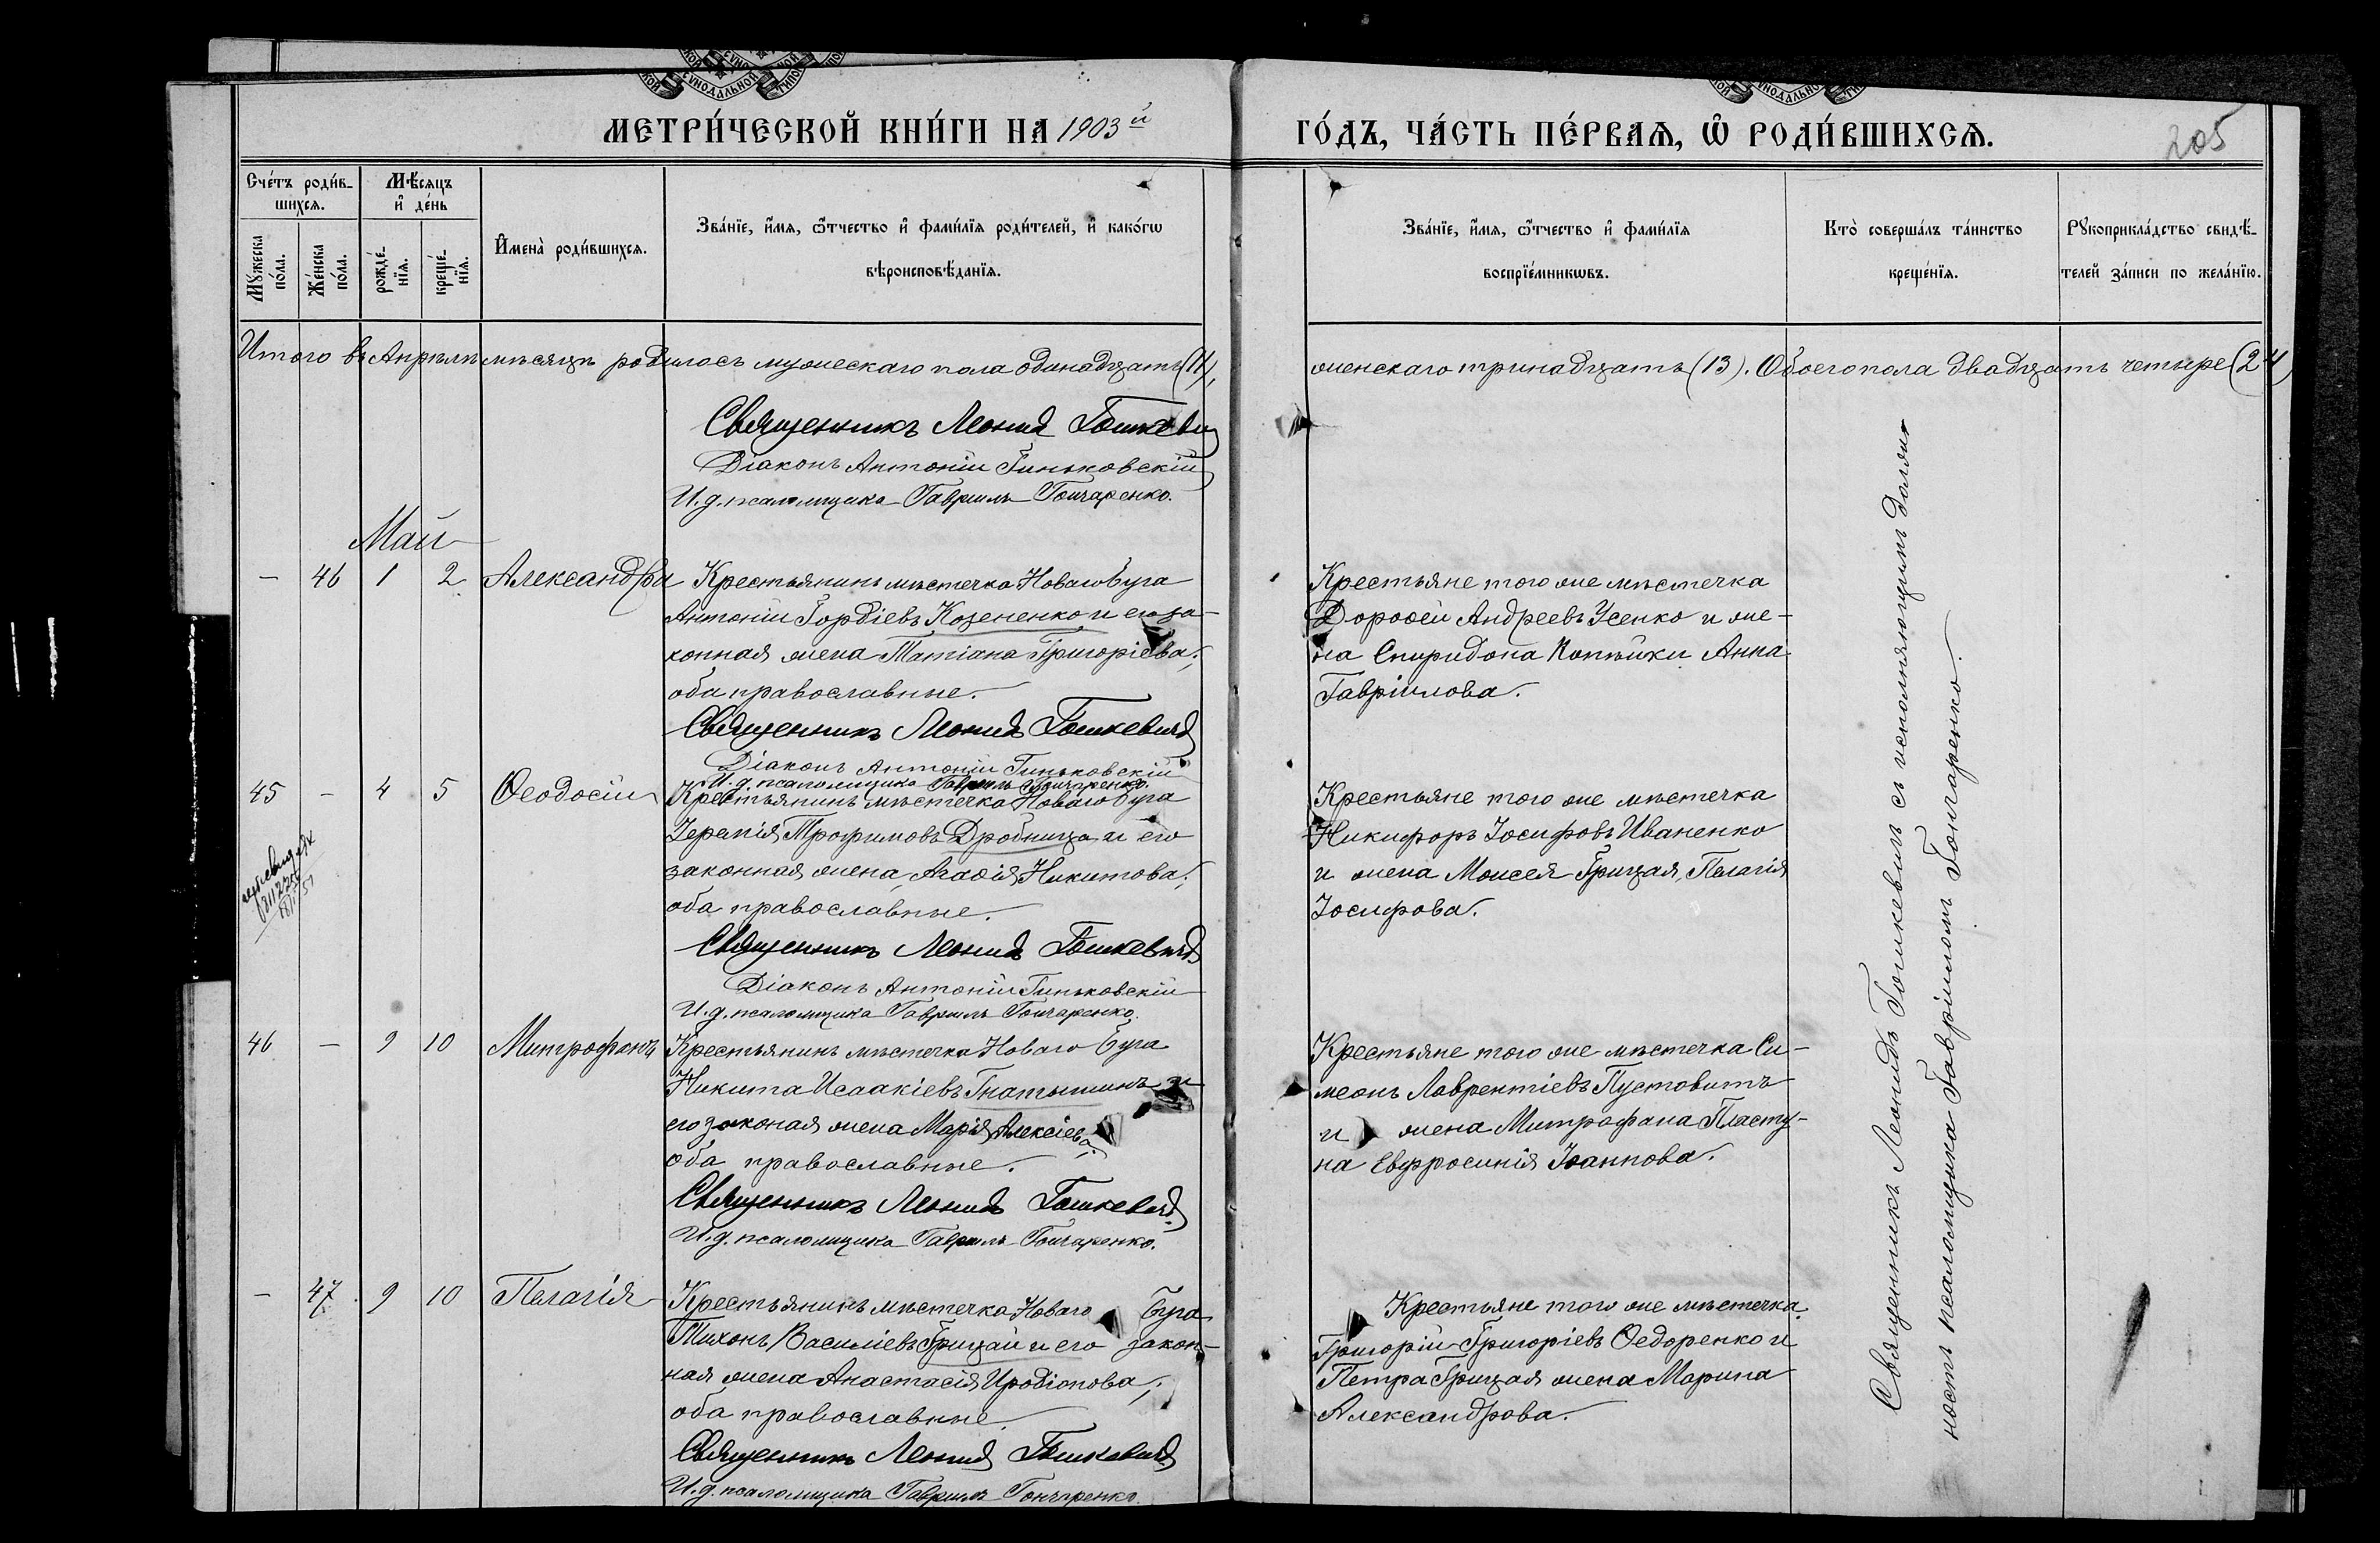 МЕТРИ́ЧЕСКОЙ КНИ́ГИ НА 1903й ГО́ДЪ, ЧА́СТЬ ПЕ́РВАѦ, Ѡ РОДИ́ВШИХСѦ.
205
Сче́тъ роди́в-
шихсѧ.
Мꙋ́жеска
по́ла.
Же́нска
по́ла.
Мѣ́сяцъ
и де́нь
рожде́-
нїѧ.
креще́-
нїѧ.
Имена̀ роди́вшихсѧ.
Зва́нїе, и́мѧ, ѻ́тчество и фами́лїѧ роди́телей, и како́гѡ
вѣроисповѣ́данїѧ.
Зва́нїе, и́мѧ, ѻ́тчество и фами́лїѧ
воспрїе́мникѡвъ.
Кто̀ соверша́лъ та́инство
креще́нїѧ.
Рꙋкоприкла́дство свидѣ́-
телей за́писи по жела́нїю.
Итого въ Апрѣлѣ мѣсяцѣ родилось мужескаго пола одинадцать (11), женскаго тринадцать (13). Обоего пола двадцать четыре (24)
Священникъ Леонид Гошкевич
Діаконъ Антоній Гиньковскій
И.д. псаломщика Гавриилъ Гончаренко.
Май
— 46 1 2 Александра
Крестьянинъ мѣстечка Новаго Буга
Антоній Гордіевъ Козененко и его за-
конная жена Татіана Григоріева;
оба православные.
Священникъ Леонид Гошкевичъ
Діаконъ Антоній Гиньковскій
И.д. псаломщика Гавриилъ Гончаренко.
Крестьяне того же мѣстечка
Дороѳей Андреевъ Усенко и же-
на Спиридона Копѣйки Анна
Гавріилова.
45 — 4 5 Ѳеодосій
Крестьянинъ мѣстечка Новаго Буга
Іеремія Трофимовъ Дробница и его
законная жена Агаѳія Никитова;
оба православные.
Священникъ Леонид Гошкевичъ
Діаконъ Антоній Гиньковскій
И.д. псаломщика Гавриилъ Гончаренко.
Крестьяне того же мѣстечка
Никифоръ Іосифовъ Иваненко
и жена Моисея Грицая, Пелагія
Іосифова.
46 — 9 10 Митрофанъ
Крестьянинъ мѣстечка Новаго Буга
Никита Исаакіевъ Гнатышинъ и
его законая жена Марія Алексіева;
оба православные.
Священникъ Леонид Гошкевичъ
И.д. псаломщика Гавриилъ Гончаренко.
Крестьяне того же мѣстечка Си-
меонъ Лаврентіевъ Пустовитъ
и жена Митрофана Пласту-
на Евфросинія Іоаннова.
— 47 9 10 Пелагія
Крестьянинъ мѣстечка Новаго Буга
Тихонъ Василіевъ Грицай и его закон-
ная жена Анастасія Иродіонова;
оба православные.
Священникъ Леонид Гошкевичъ
И.д. псаломщика Гавриилъ Гончаренко.
Крестьяне того же мѣстечка
Григорій Григоріевъ Ѳедоренко и
Петра Грицая жена Марина
Александрова.
Священникъ Леонидъ Гошкевичъ съ исполняющимъ долж-
ность псаломщика Гавріиломъ Гончаренко.